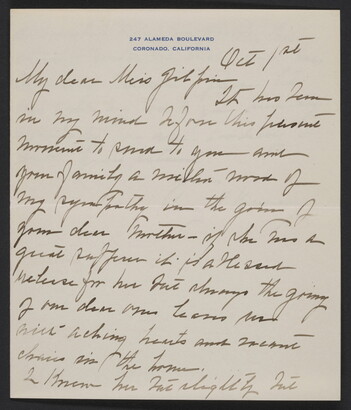 247 ALAMEDA BOULEVARD
CORONADO, CALIFORNIA
Oct 1st
My dear Miss Gilpin
It has been
in my mind before this present
moment to send to you and
your family a word of
my sympathy in the going of
your dear Mother - if she was a
great sufferer it is a blessed
release for her but always the going
of our dear ones leaves us
with aching hearts and vacant
chairs in the home.
I knew her but slightly but